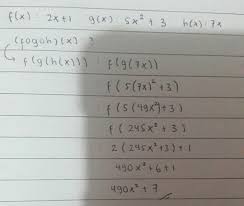 f(x) : 2x+1 g(x) : 5x² + 3 h(x) : 7x
(fogoh)(x) ?
f(g(h(x))) : f(g(7x))
f(5(7x)²+3)
f(5(49x²)+3)
f(245x²+3)
2(245x²+3)+1
490x²+6+1
490x²+7